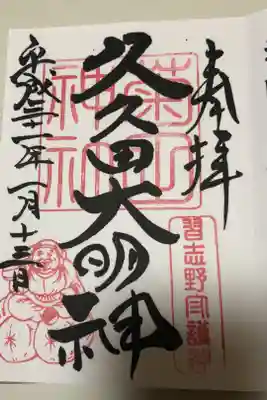 奉拝
習志野守護神
菊田
神社
久久田大明神
平成三十一年一月十三日